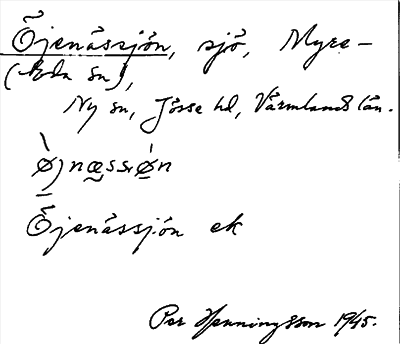 Öjenässjön, sjö, Myre-
(Eda sn),
Ny sn, Jösse hd, Värmlands län.
ø̀jnæssiøn
Öjenässjön ek
Per Henningsson 1945.